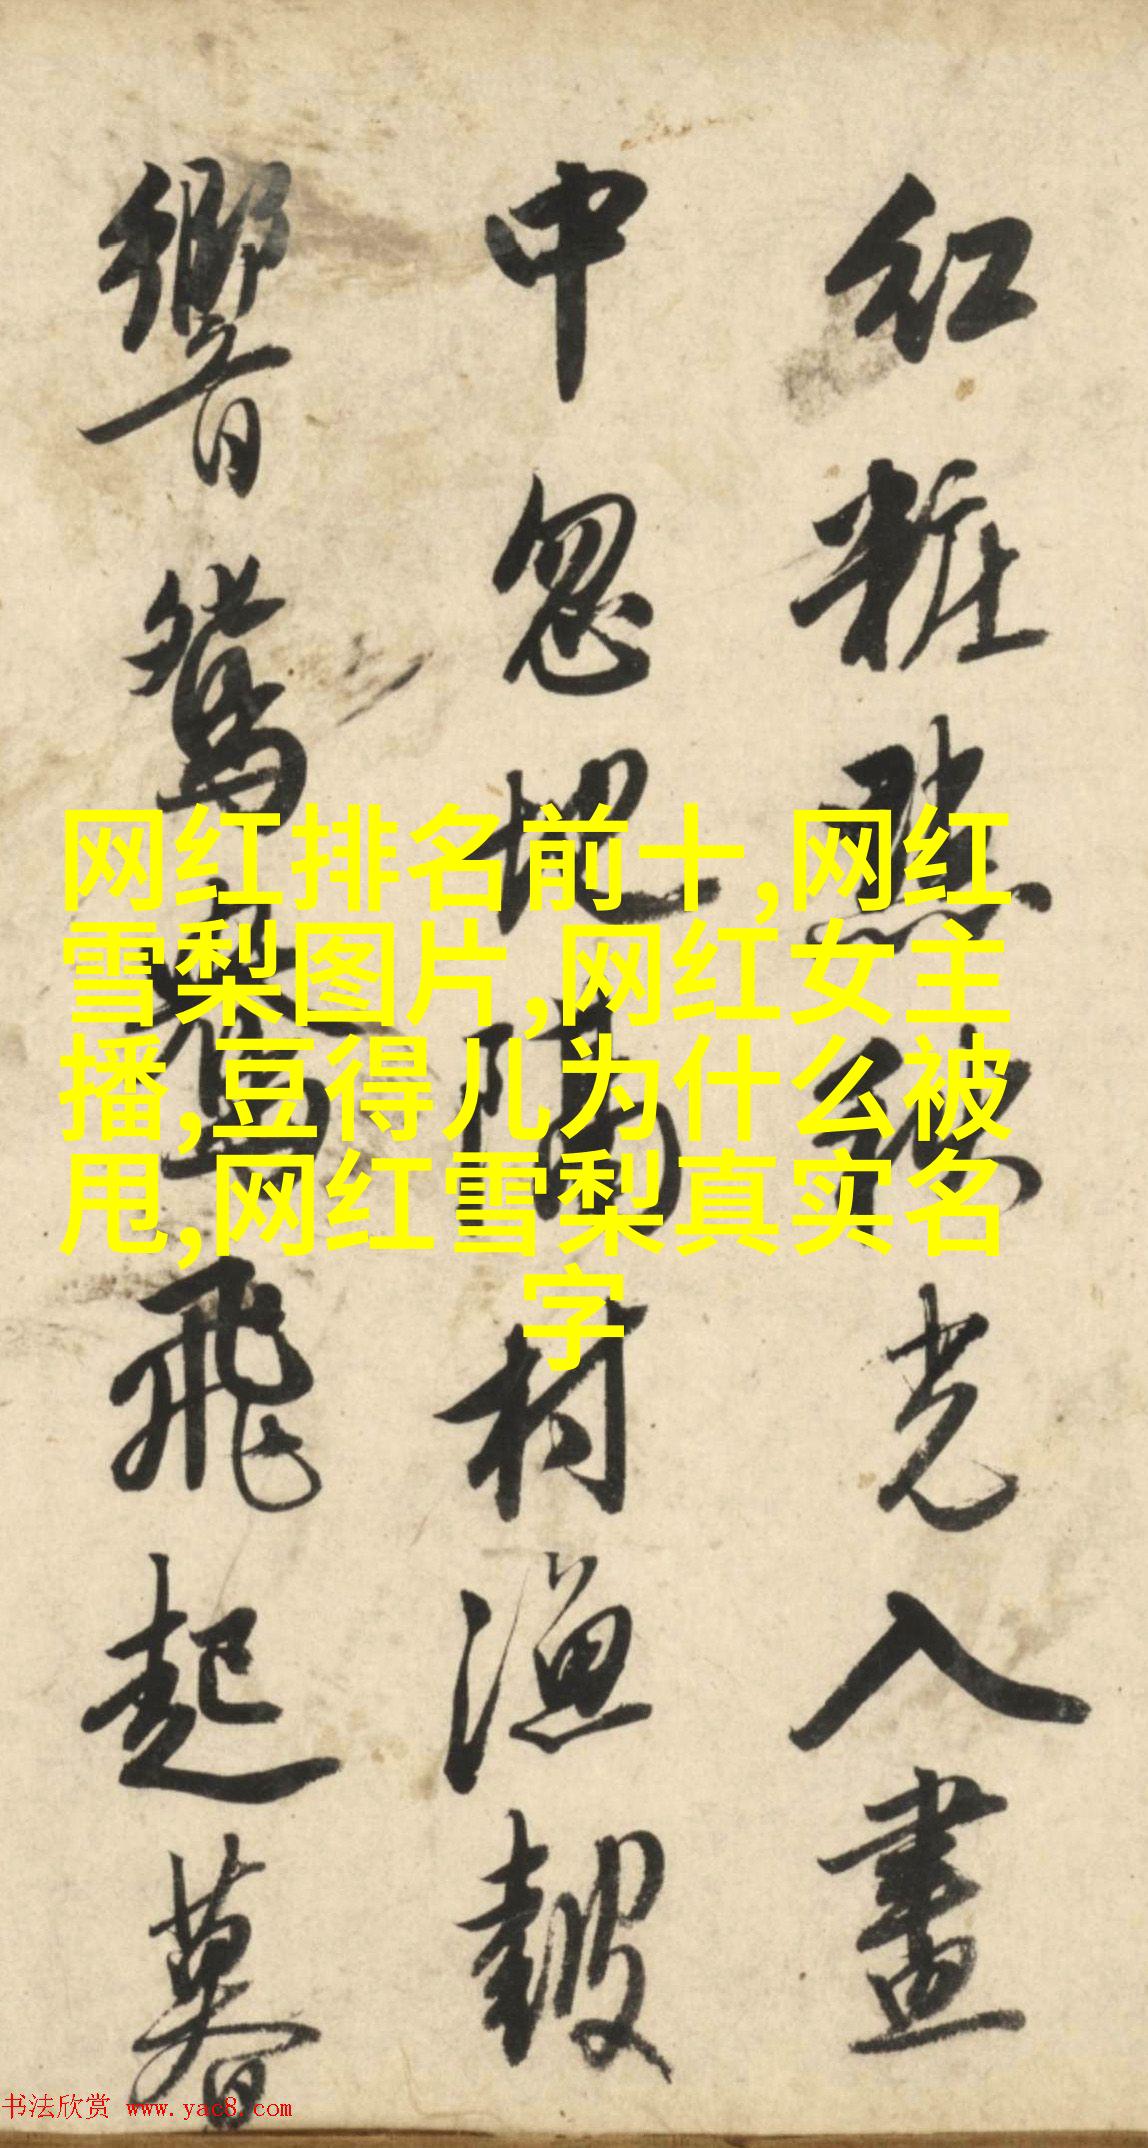 红粧點光入畫
中忽地隔村漁皷
響鴛鴦飛起暮
网红排名前十,网红
雪梨图片,网红女主
播,豆得儿为什么被
甩,网红雪梨真实名
字
书法欣赏 www.yac8.com